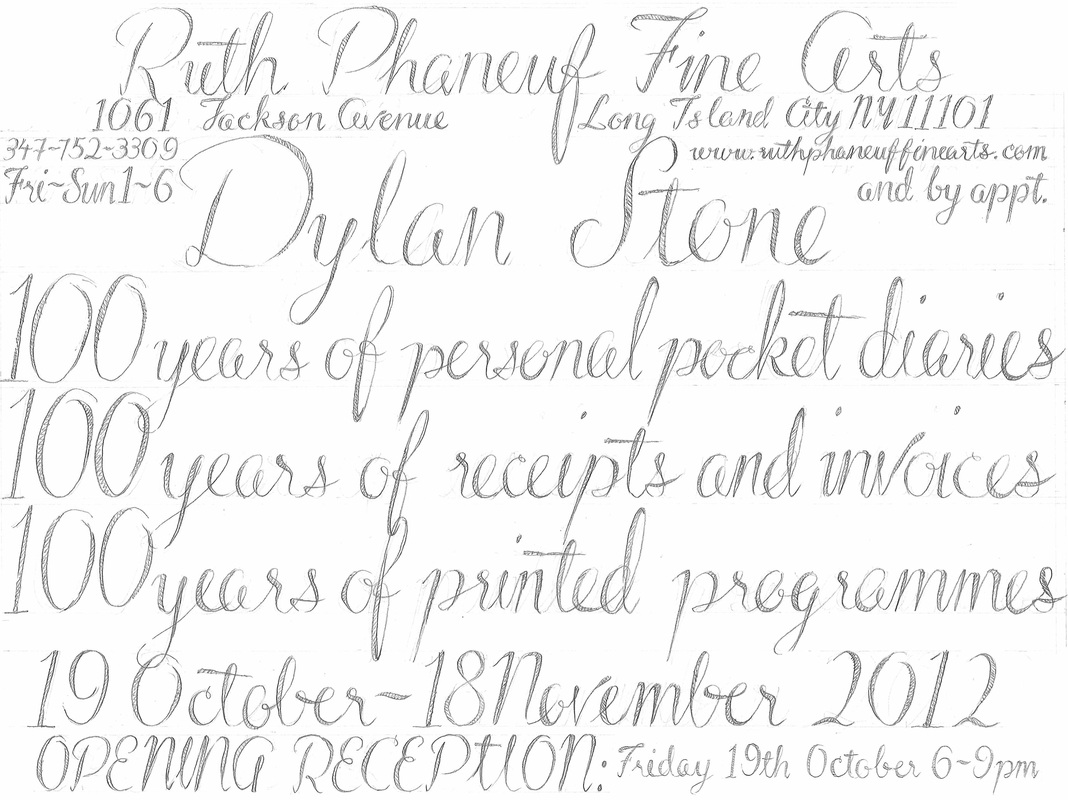 Ruth Phaneuf Fine Arts
1061 Jackson Avenue Long Island City NY 11101
347-752-3309 www.ruthphaneuffinearts.com
Fri~Sun 1~6 and by appt.
Dylan Stone
100 years of personal pocket diaries
100 years of receipts and invoices
100 years of printed programmes
19 October~18 November 2012
OPENING RECEPTION: Friday 19th October 6~9pm